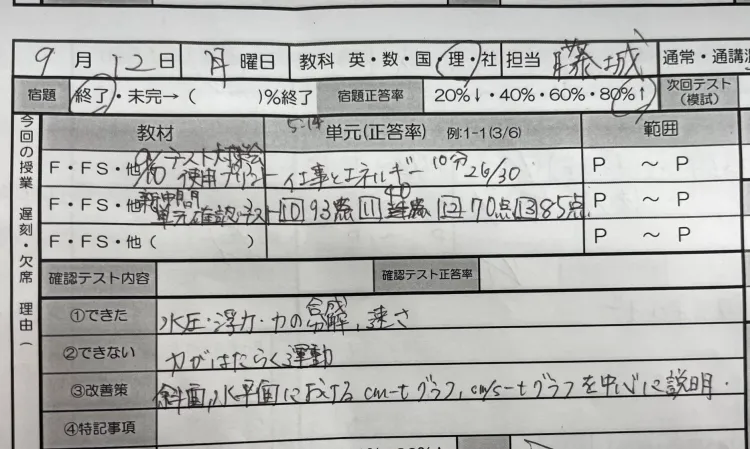 9月12日 月曜日 教科 英・数・国・理・社 担当 藤城 通常・通講
宿題 終了・未完→( )%終了 宿題正答率 20%↓・40%・60%・80%↑ 次回テスト(模試)
今回の授業 遅刻・欠席 理由(
教材 5-14 単元(正答率) 例:1-1(3/6) 範囲
F・FS・他 9/10 テスト大勉会 使用プリント 仕事とエネルギー 10分 26/30 P ～ P
F・FS・他 単元確認テスト 10 93点 11 40点 12 70点 13 85点 P ～ P
F・FS・他( ) P ～ P
確認テスト内容 確認テスト正答率
①できた 水圧・浮力・力の合成分解,速さ
②できない 力がはたらく運動
③改善策 斜面,水平面における cm-tグラフ,cm/s-tグラフを中心に説明.
④特記事項